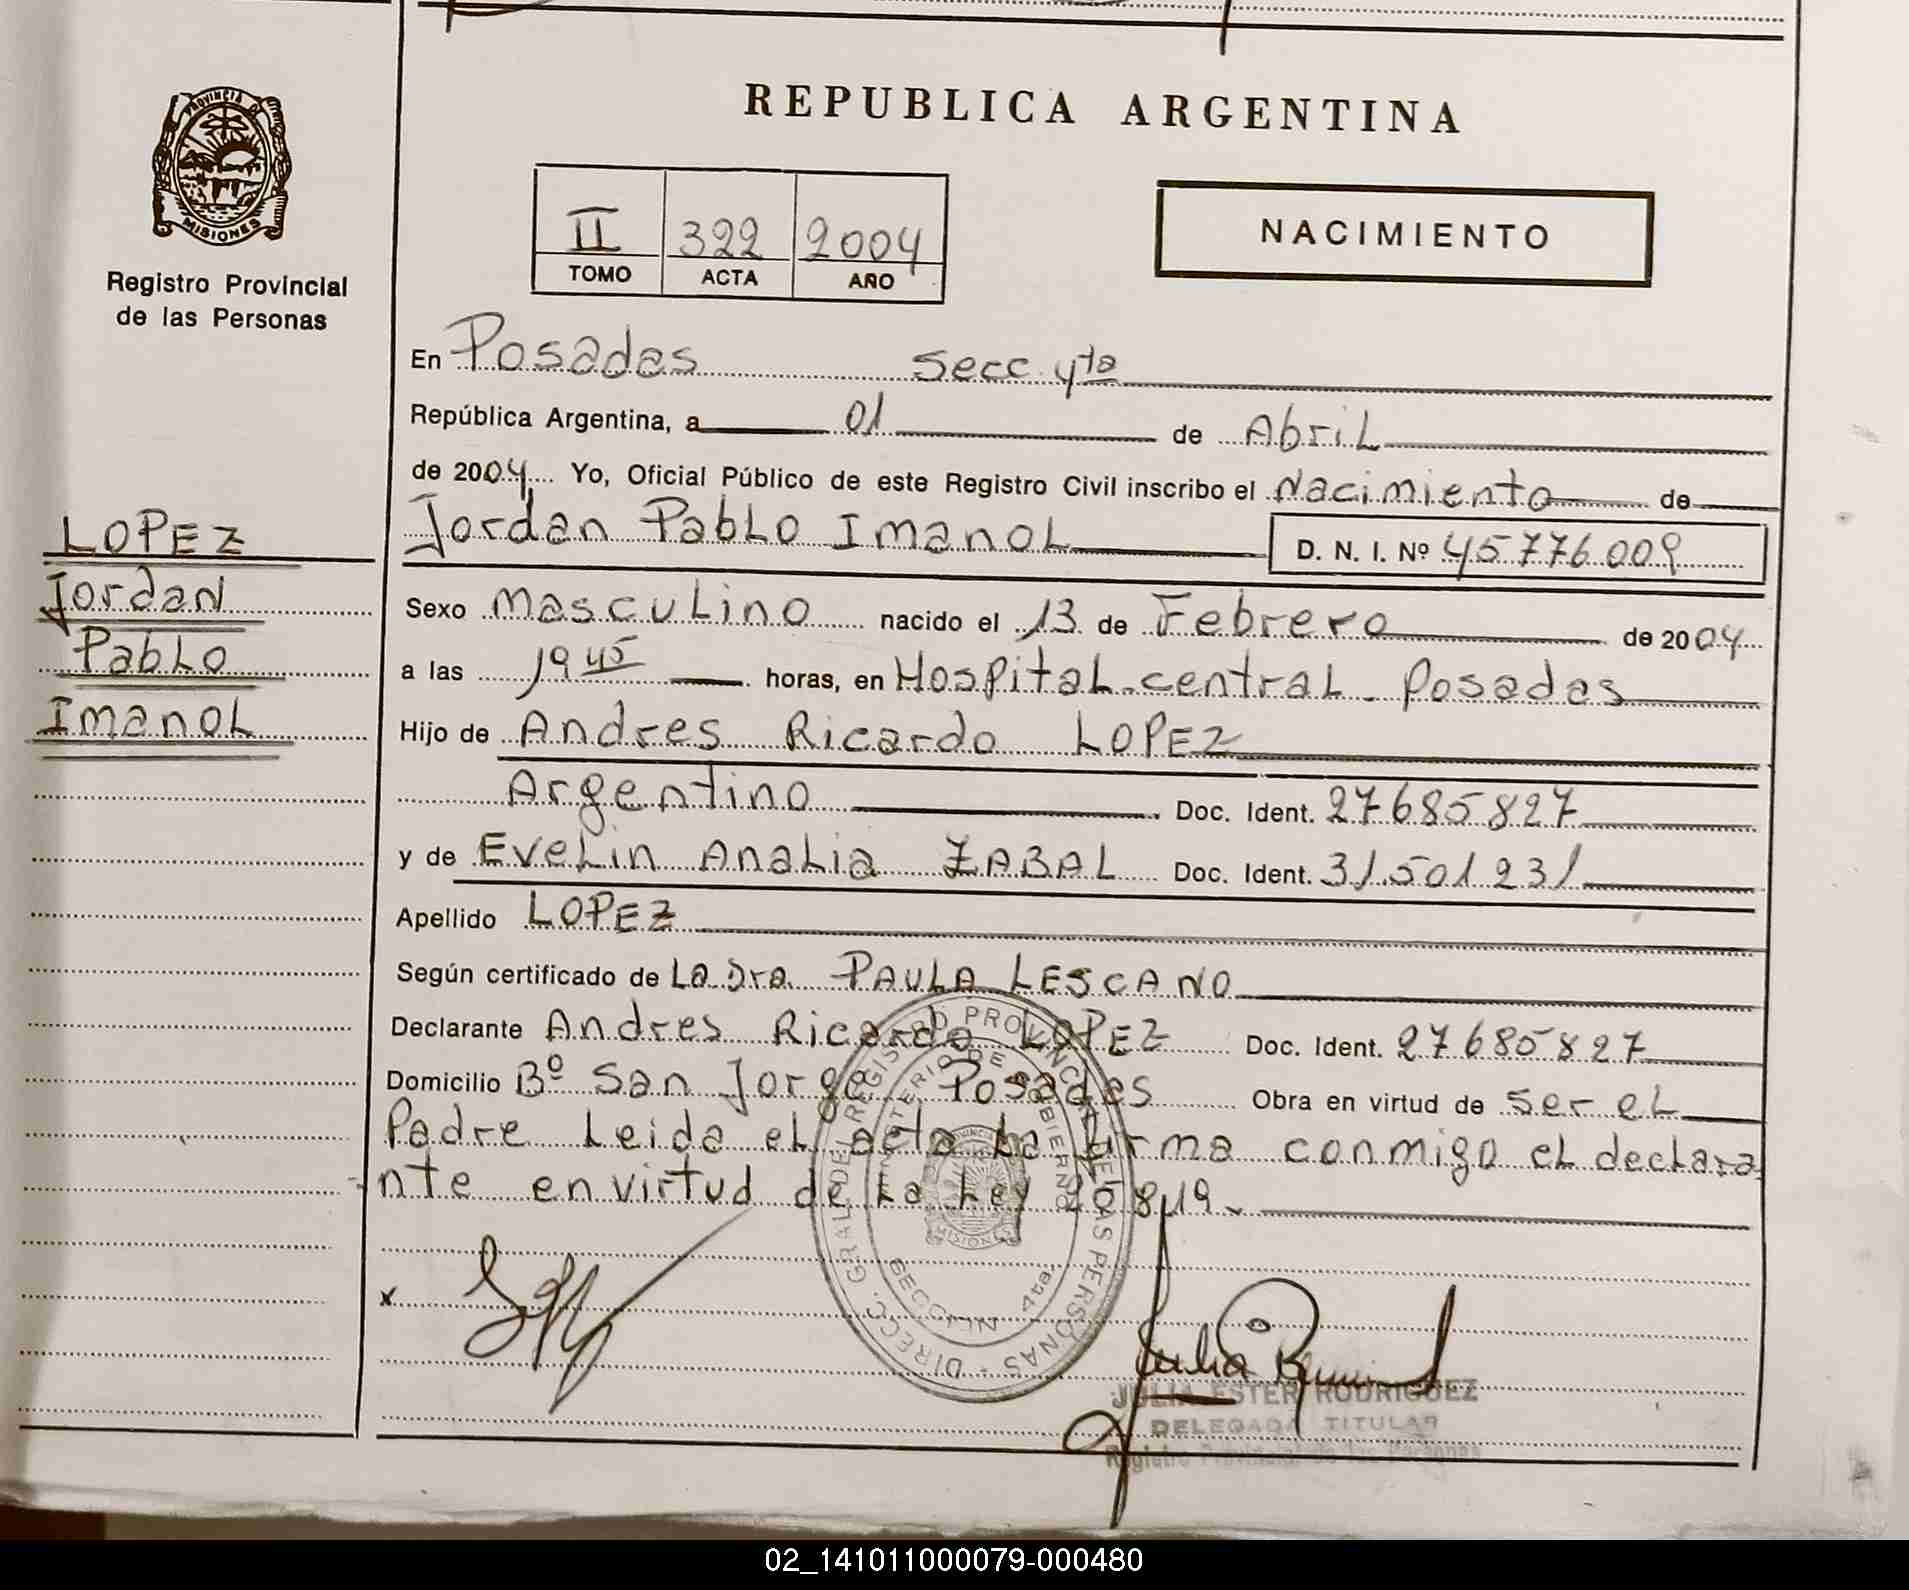 REPUBLICA ARGENTINA
PROVINCIA DE
MISIONES
Registro Provincial
de las Personas
II 322 2004
TOMO ACTA AÑO
NACIMIENTO
En Posadas Secc 4ta
República Argentina, a 01 de Abril
de 2004 Yo, Oficial Público de este Registro Civil inscribo el Nacimiento de
Jordan Pablo Imanol D. N. I. Nº 45.776.009
LOPEZ
Jordan
Pablo
Imanol
Sexo Masculino nacido el 13 de Febrero de 2004
a las 19 45 horas, en Hospital central - Posadas
Hijo de Andres Ricardo LOPEZ
Argentino Doc. Ident. 27685827
y de Evelin Analia ZABAL Doc. Ident. 31.501231
Apellido LOPEZ
Según certificado de La Dra. PAULA LESCANO
Declarante Andres Ricardo LOPEZ Doc. Ident. 27685827
Domicilio Bº San Jorge Posadas Obra en virtud de ser el
Padre Leida el acta La firma conmigo el declara
nte en virtud de La Ley 20819.
DIRECC. GRAL. DEL REGISTRO PROVINCIAL DE LAS PERSONAS
MINISTERIO DE GOBIERNO
MISIONES
SECC 4ta.
x
JULIA ESTER RODRIGUEZ
DELEGADA TITULAR
Registro Provincial de las Personas
02_141011000079-000480